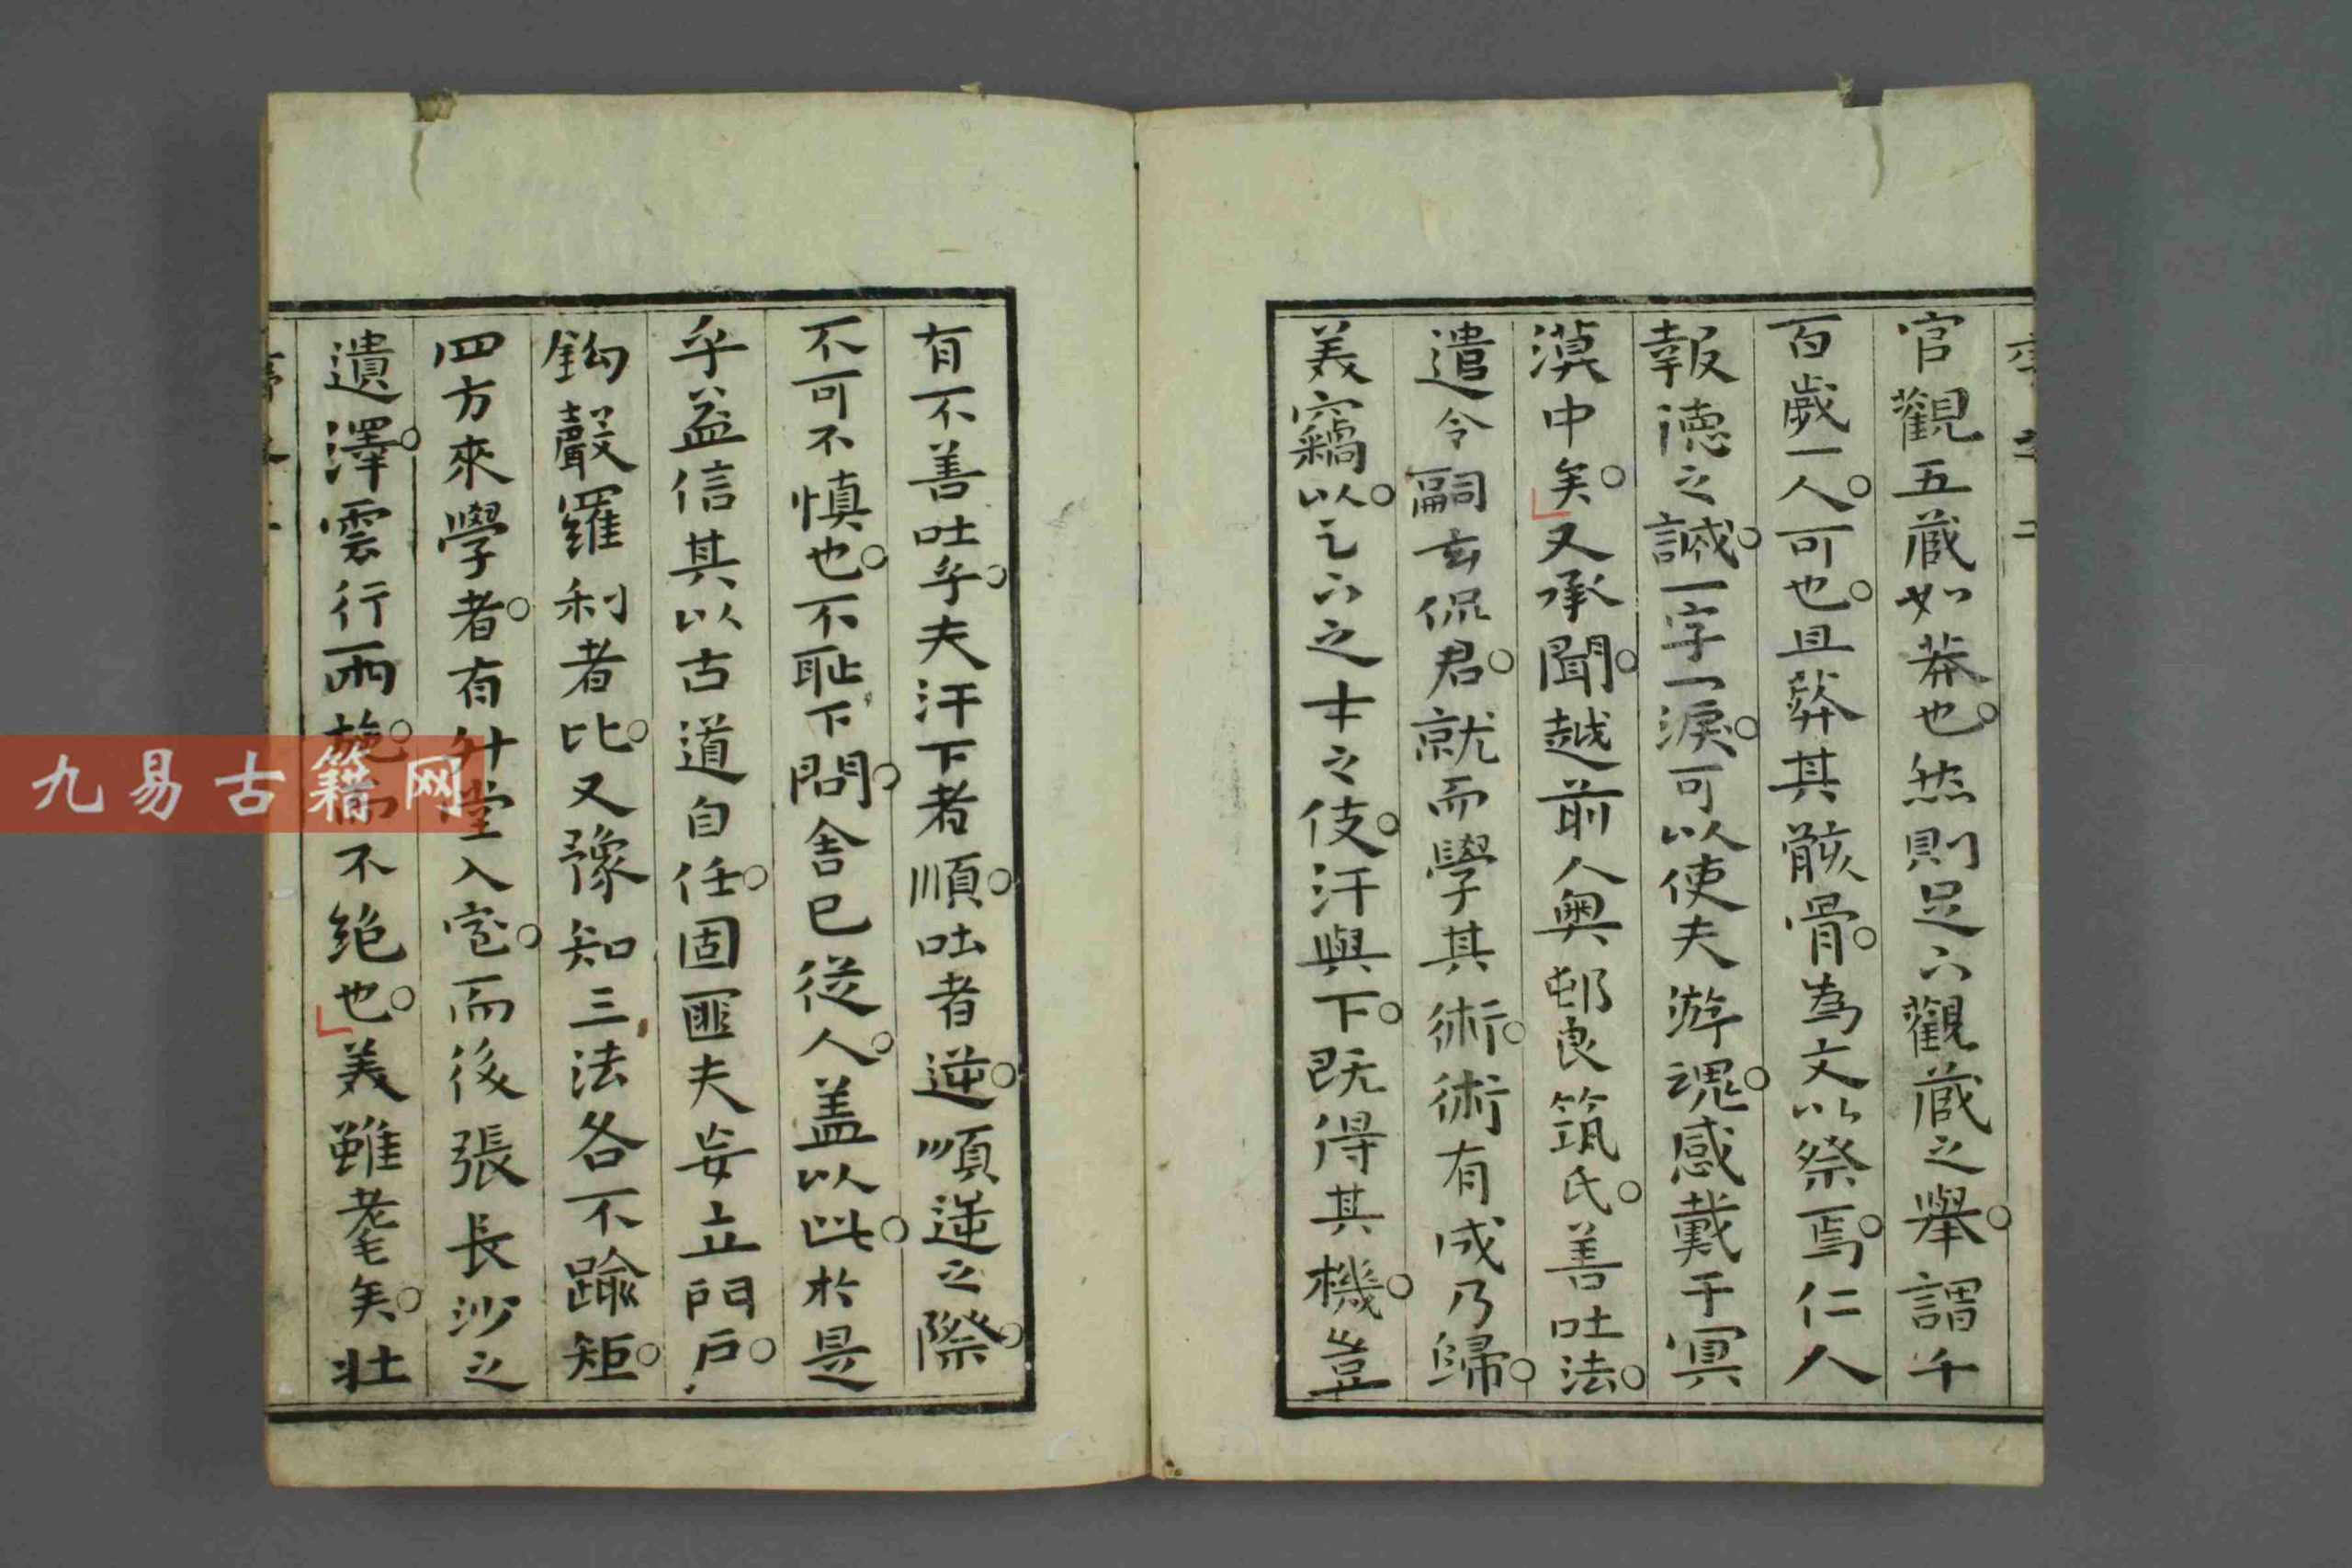 官觀五藏如莽也然則足六觀藏之舉謂千
百歲一人可也且葬其骸骨為文以祭焉仁人
報德之誠一字一淚可以使夫游魂感戴于冥
漠中矣又承聞越前人奧邨良筑氏善吐法
遣令嗣玄侃君就而學其術術有成乃歸
美竊以之士之伎汗與下既得其機豈
有不善吐乎夫汗下者順吐者逆順逆之際
不可不慎也不恥下問舍己從人蓋以此於是
乎益信其以古道自任固匪夫妄立門戶
鈎聲羅利者比又豫知三法各不踰矩
四方來學者有升堂入室而後張長沙之
遺澤雲行雨施而不絕也美雖耄矣壯
九易古籍网